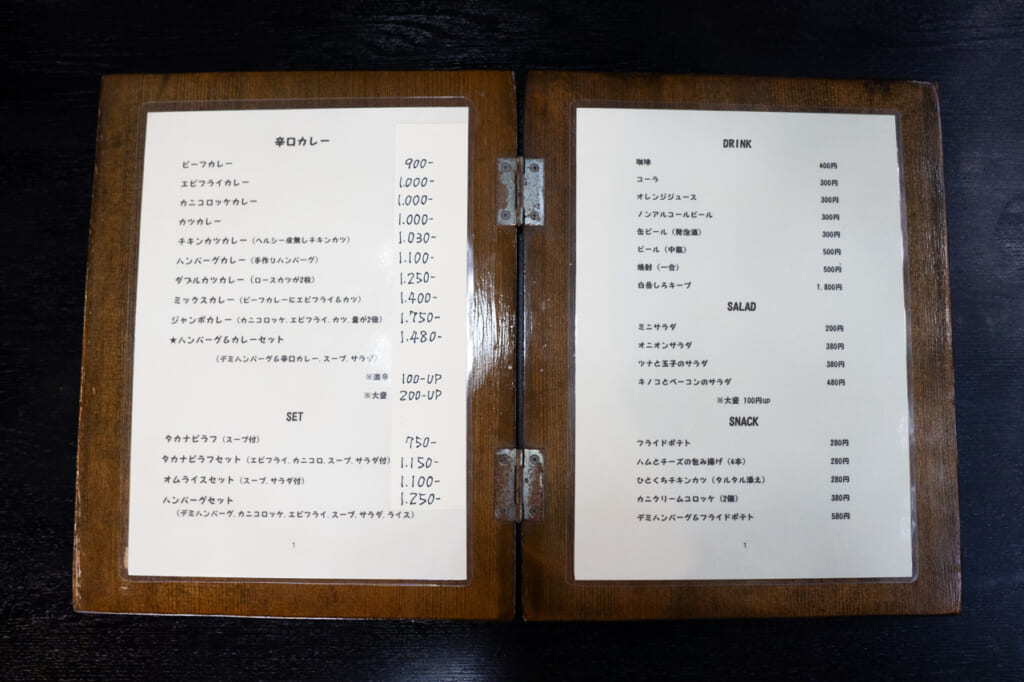 辛口カレー
ビーフカレー 900-
エビフライカレー 1.000-
カニコロッケカレー 1.000-
カツカレー 1.000-
チキンカツカレー (ヘルシー皮無しチキンカツ) 1.030-
ハンバーグカレー (手作りハンバーグ) 1.100-
ダブルカツカレー (ロースカツが2枚) 1.250-
ミックスカレー (ビーフカレーにエビフライ&カツ) 1.400-
ジャンボカレー (カニコロッケ、エビフライ、カツ、量が2倍) 1.750-
★ハンバーグ&カレーセット 1.480-
(デミハンバーグ&辛口カレー、スープ、サラダ)
※激辛 100-UP
※大盛 200-UP
SET
タカナピラフ (スープ付) 750-
タカナピラフセット (エビフライ、カニコロ、スープ、サラダ付) 1.150-
オムライスセット (スープ、サラダ付) 1.100-
ハンバーグセット 1.250-
(デミハンバーグ、カニコロッケ、エビフライ、スープ、サラダ、ライス)
1
DRINK
珈琲 400円
コーラ 300円
オレンジジュース 300円
ノンアルコールビール 300円
缶ビール (発泡酒) 300円
ビール (中瓶) 500円
焼酎 (一合) 500円
白岳しろキープ 1,800円
SALAD
ミニサラダ 200円
オニオンサラダ 380円
ツナと玉子のサラダ 380円
キノコとベーコンのサラダ 480円
※大盛 100円up
SNACK
フライドポテト 280円
ハムとチーズの包み揚げ (4本) 280円
ひとくちチキンカツ (タルタル添え) 280円
カニクリームコロッケ (2個) 380円
デミハンバーグ&フライドポテト 580円
1